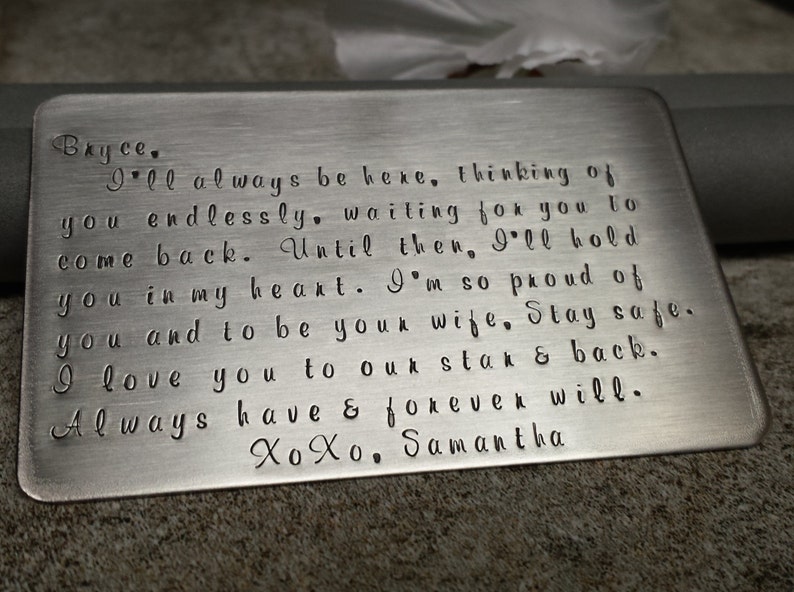 Bryce,
I'll always be here, thinking of
you endlessly, waiting for you to
come back. Until then, I'll hold
you in my heart. I'm so proud of
you and to be your wife. Stay safe.
I love you to our star & back.
Always have & forever will.
XoXo, Samantha